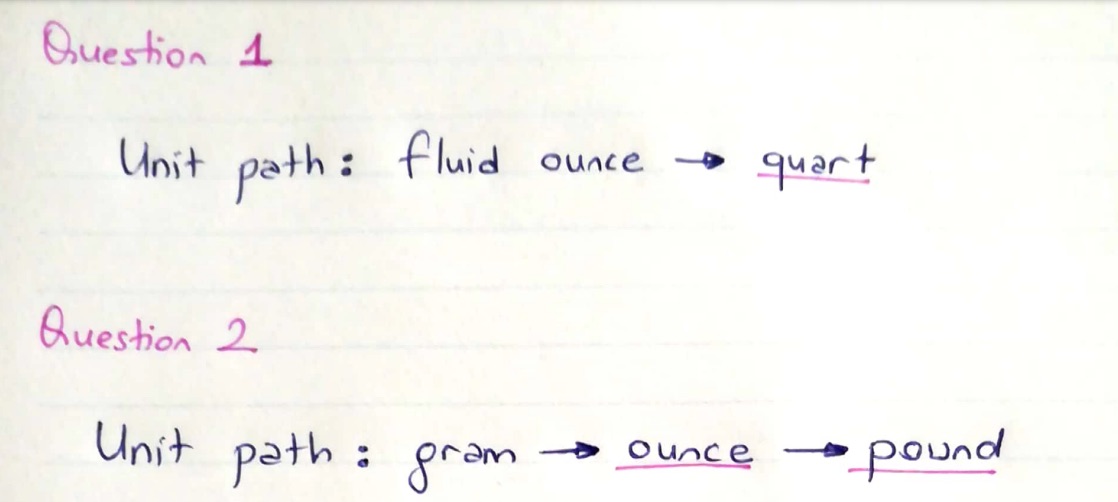 Question 1
Unit path: fluid ounce → quart
Question 2
Unit path: gram → ounce → pound